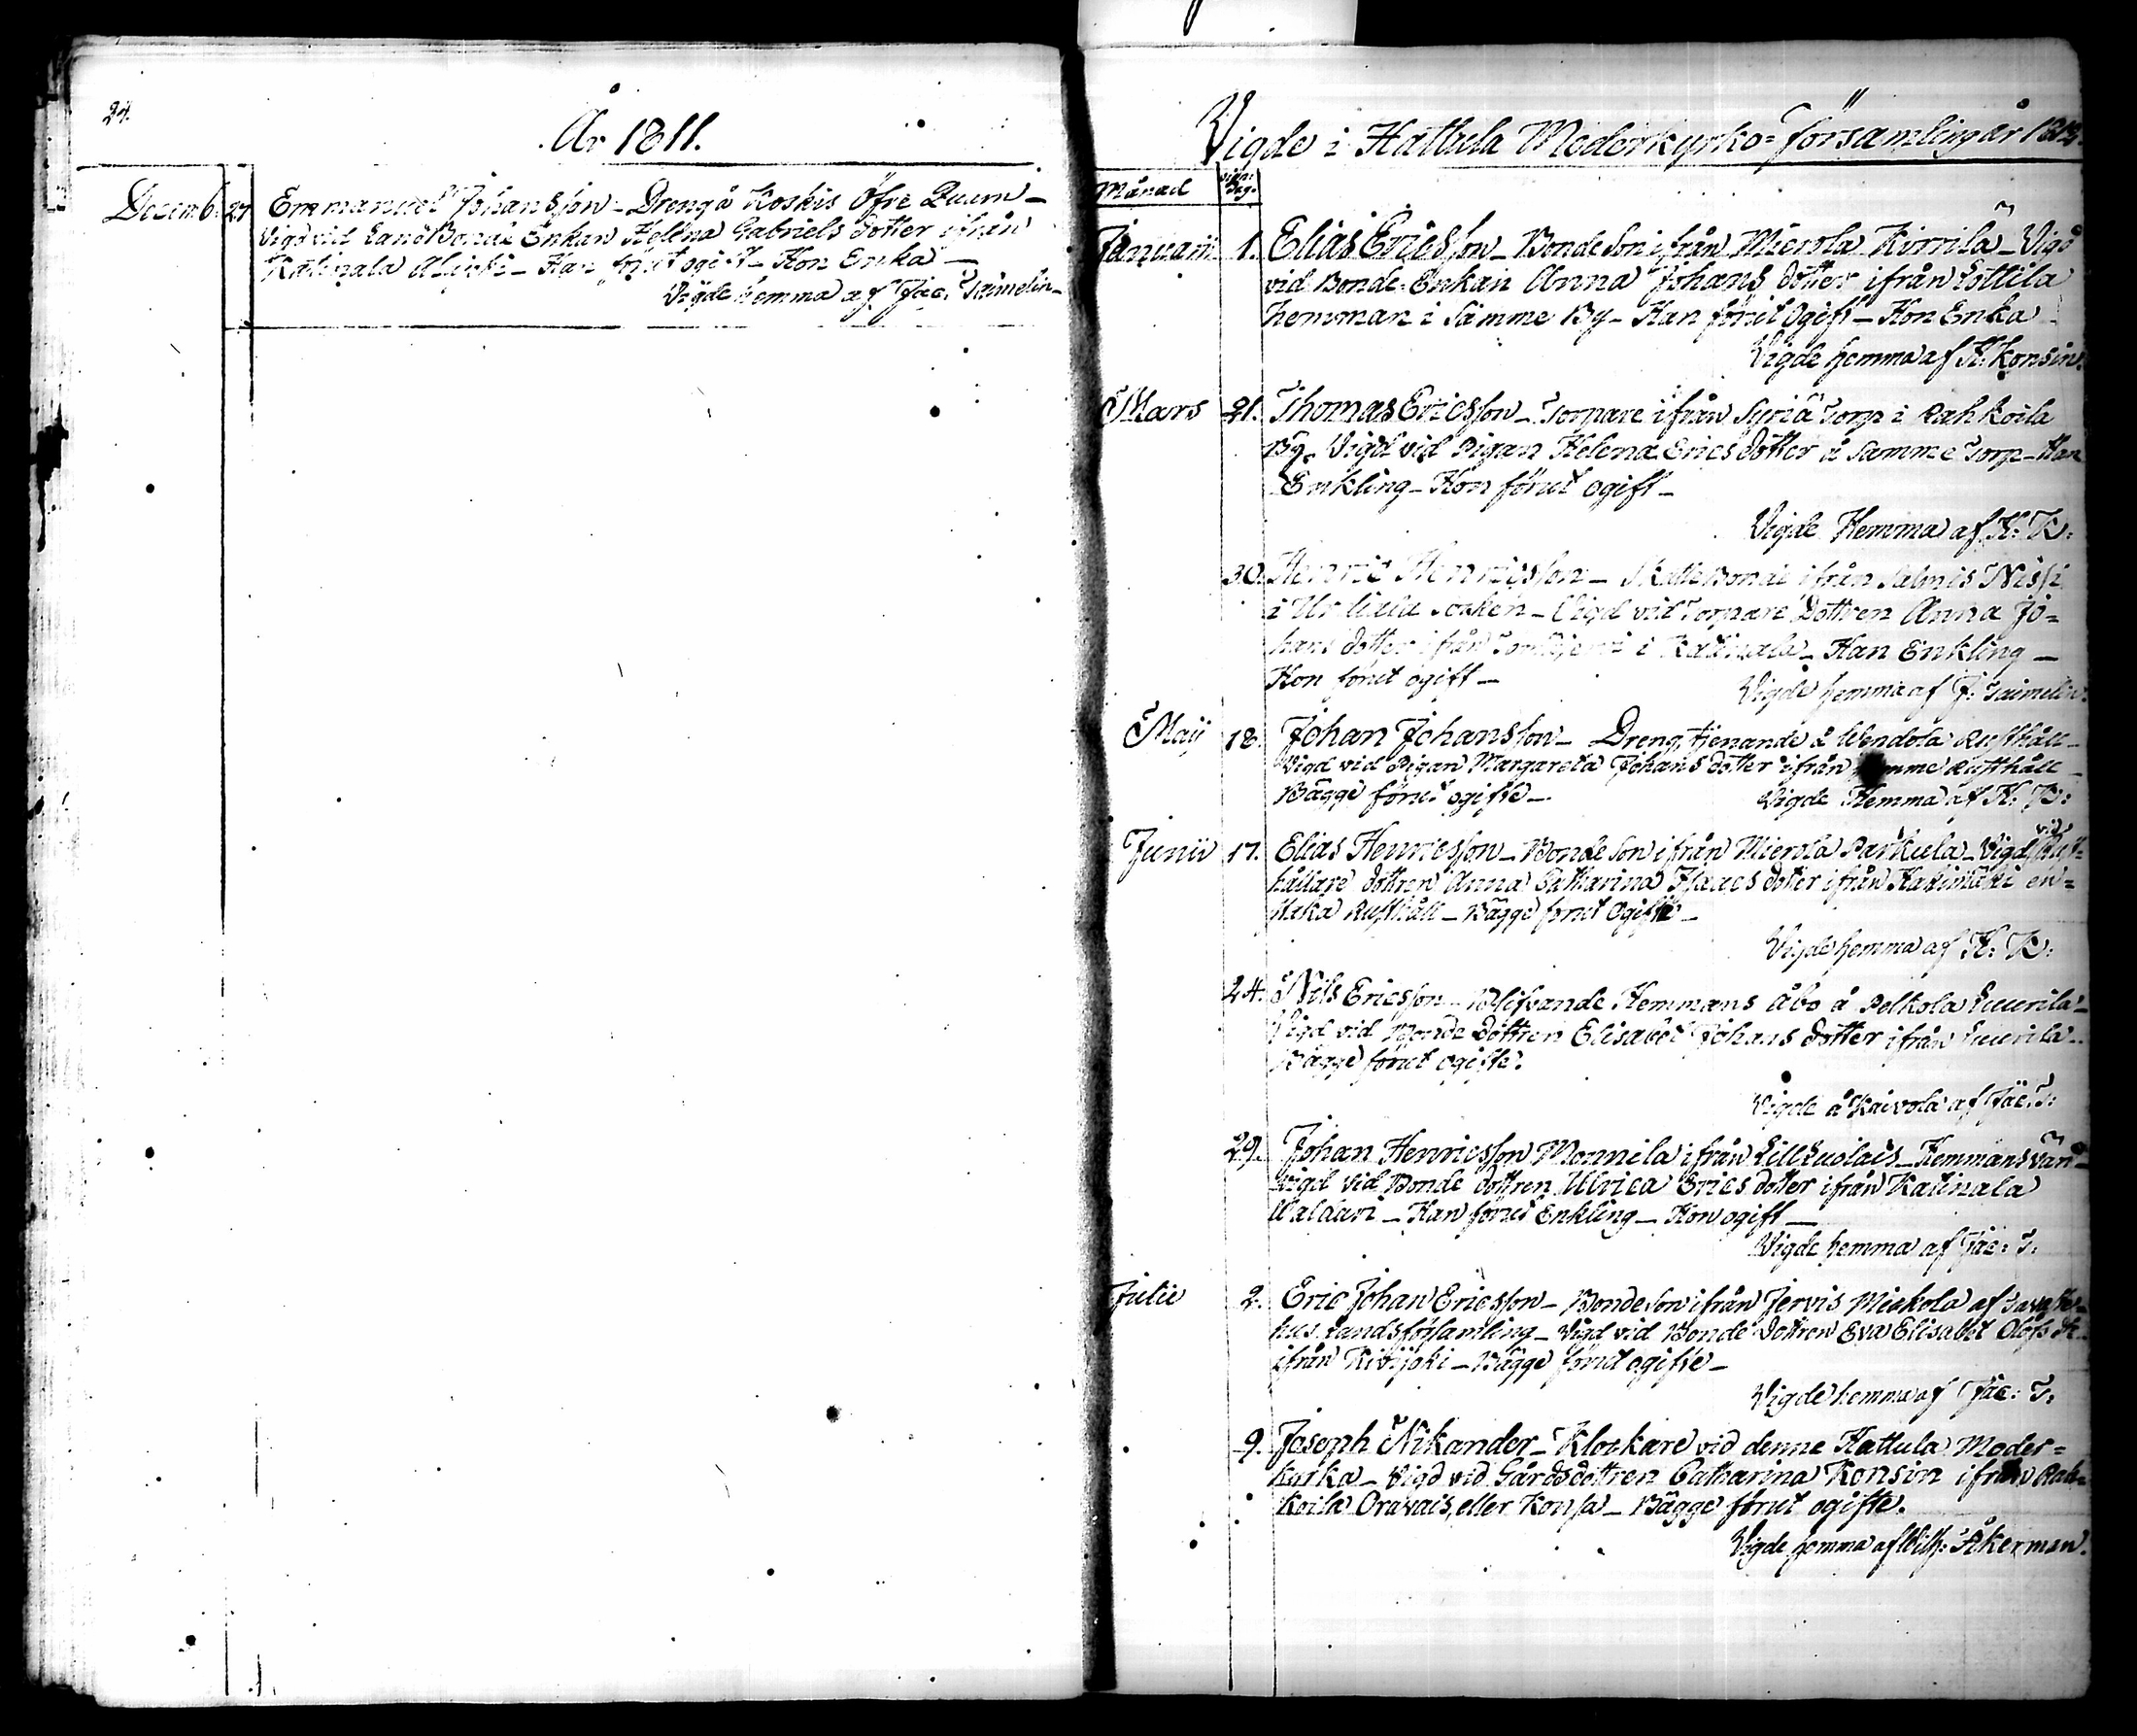 24.
År 1811.
Decemb. 27 Emmanuel Johansson - Dreng å Koskis Öfre Qvarn -
Vigd vid Landbonde Enkan Helena Gabriels dotter ifrån
Katinala Alijoki - Han förut ogift - Hon Enka -
Vigde hemma af Jac. Taimelin -
Vigde i Hattula Moderkyrko-församling år 1812.
Månad Dag.
Januarii 1. Elias Ericsson - Bonde Son ifrån Mierola Kirrilä - Vigd
vid Bonde Enkan Anna Johans dotter ifrån Lottila
hemman i Samme By - Han förut Ogift - Hon Enka
Vigde hemma af H. Konsin.
Mars 21. Thomas Ericsson - Torpare ifrån Syriä Torp i Rahkoila
By. Vigd vid Pigan Helena Erics dotter å Samme Torp - Han
Enkling - Hon förut ogift -
Vigde Hemma af H. K.
30. Henric Henricsson - Skattebonde ifrån Salmis Nissi
i Urdiala Socken - Vigd vid Torpare Dottren Anna Jo=
hans dotter ifrån i Katinala - Han Enkling -
Hon förut ogift -
Vigde hemma af J. Taimelin.
Maji 18. Johan Johansson - Dreng, tjenande å Wendola Rusthåll -
Vigd vid Pigan Margareta Johans dotter ifrån samme Rusthåll -
Bägge förut ogifte - Vigde Hemma af H. K:
Junii 17. Elias Henricsson - Bonde Son ifrån Mierola Parkula - Vigd vid Rust=
hållare dottren Anna Catharina Isaacs dotter ifrån en=
staka Rusthåll - Bägge förut Ogifte -
Vigde hemma af H. K:
24. Nils Ericsson - Blifvande Hemmans Åbo å Pelkola Luurila -
Vigd vid Bonde Dottren Elisabet Johans dotter ifrån Luurila -
Bägge förut ogifte.
Vigde å Kaivola af Jac. T:
29. Johan Henricsson Monnila ifrån Lill Luolais - Hemmansvän -
Vigd vid Bonde dottren Ulrica Erics dotter ifrån Katinala
Waldari - Han förut Enkling - Hon ogift -
Vigde hemma af Jac: T.
Julii 2. Eric Johan Ericsson - Bonde Son ifrån Jervis Miekola af Tavaste=
hus Landsförsamling - Vigd vid Bonde Dottren Eva Elisabet Olofs dr
ifrån Kivijoki - Bägge förut ogifte -
Vigde hemma af Jac: T:
9. Joseph Nikander - Klockare vid denne Hattula Moder=
kyrka - Vigd vid Gårdsdottren Catharina Konsin ifrån Rah=
koila Oravais, eller Konsa - Bägge förut ogifte.
Vigde hemma af Wilh: Åkerman.